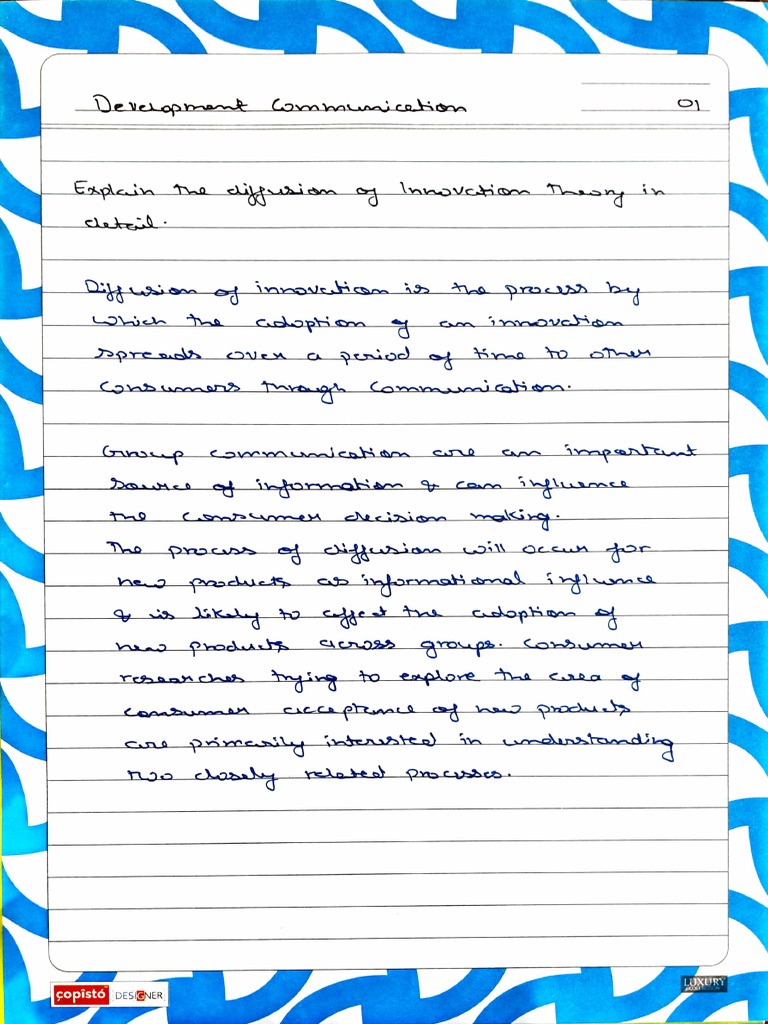 Development Communication
01
Explain the diffusion of Innovation Theory in
detail.
Diffusion of innovation is the process by
which the adoption of an innovation
spreads over a period of time to other
consumers through communication.
Group communication are an important
source of information & can influence
the consumer decision making.
The process of diffusion will occur for
new products as informational influence
& is likely to affect the adoption of
new products across groups. Consumer
researches trying to explore the area of
consumer acceptance of new products
are primarily interested in understanding
two closely related processes.
çopîstó DESIGNER
LUXURY